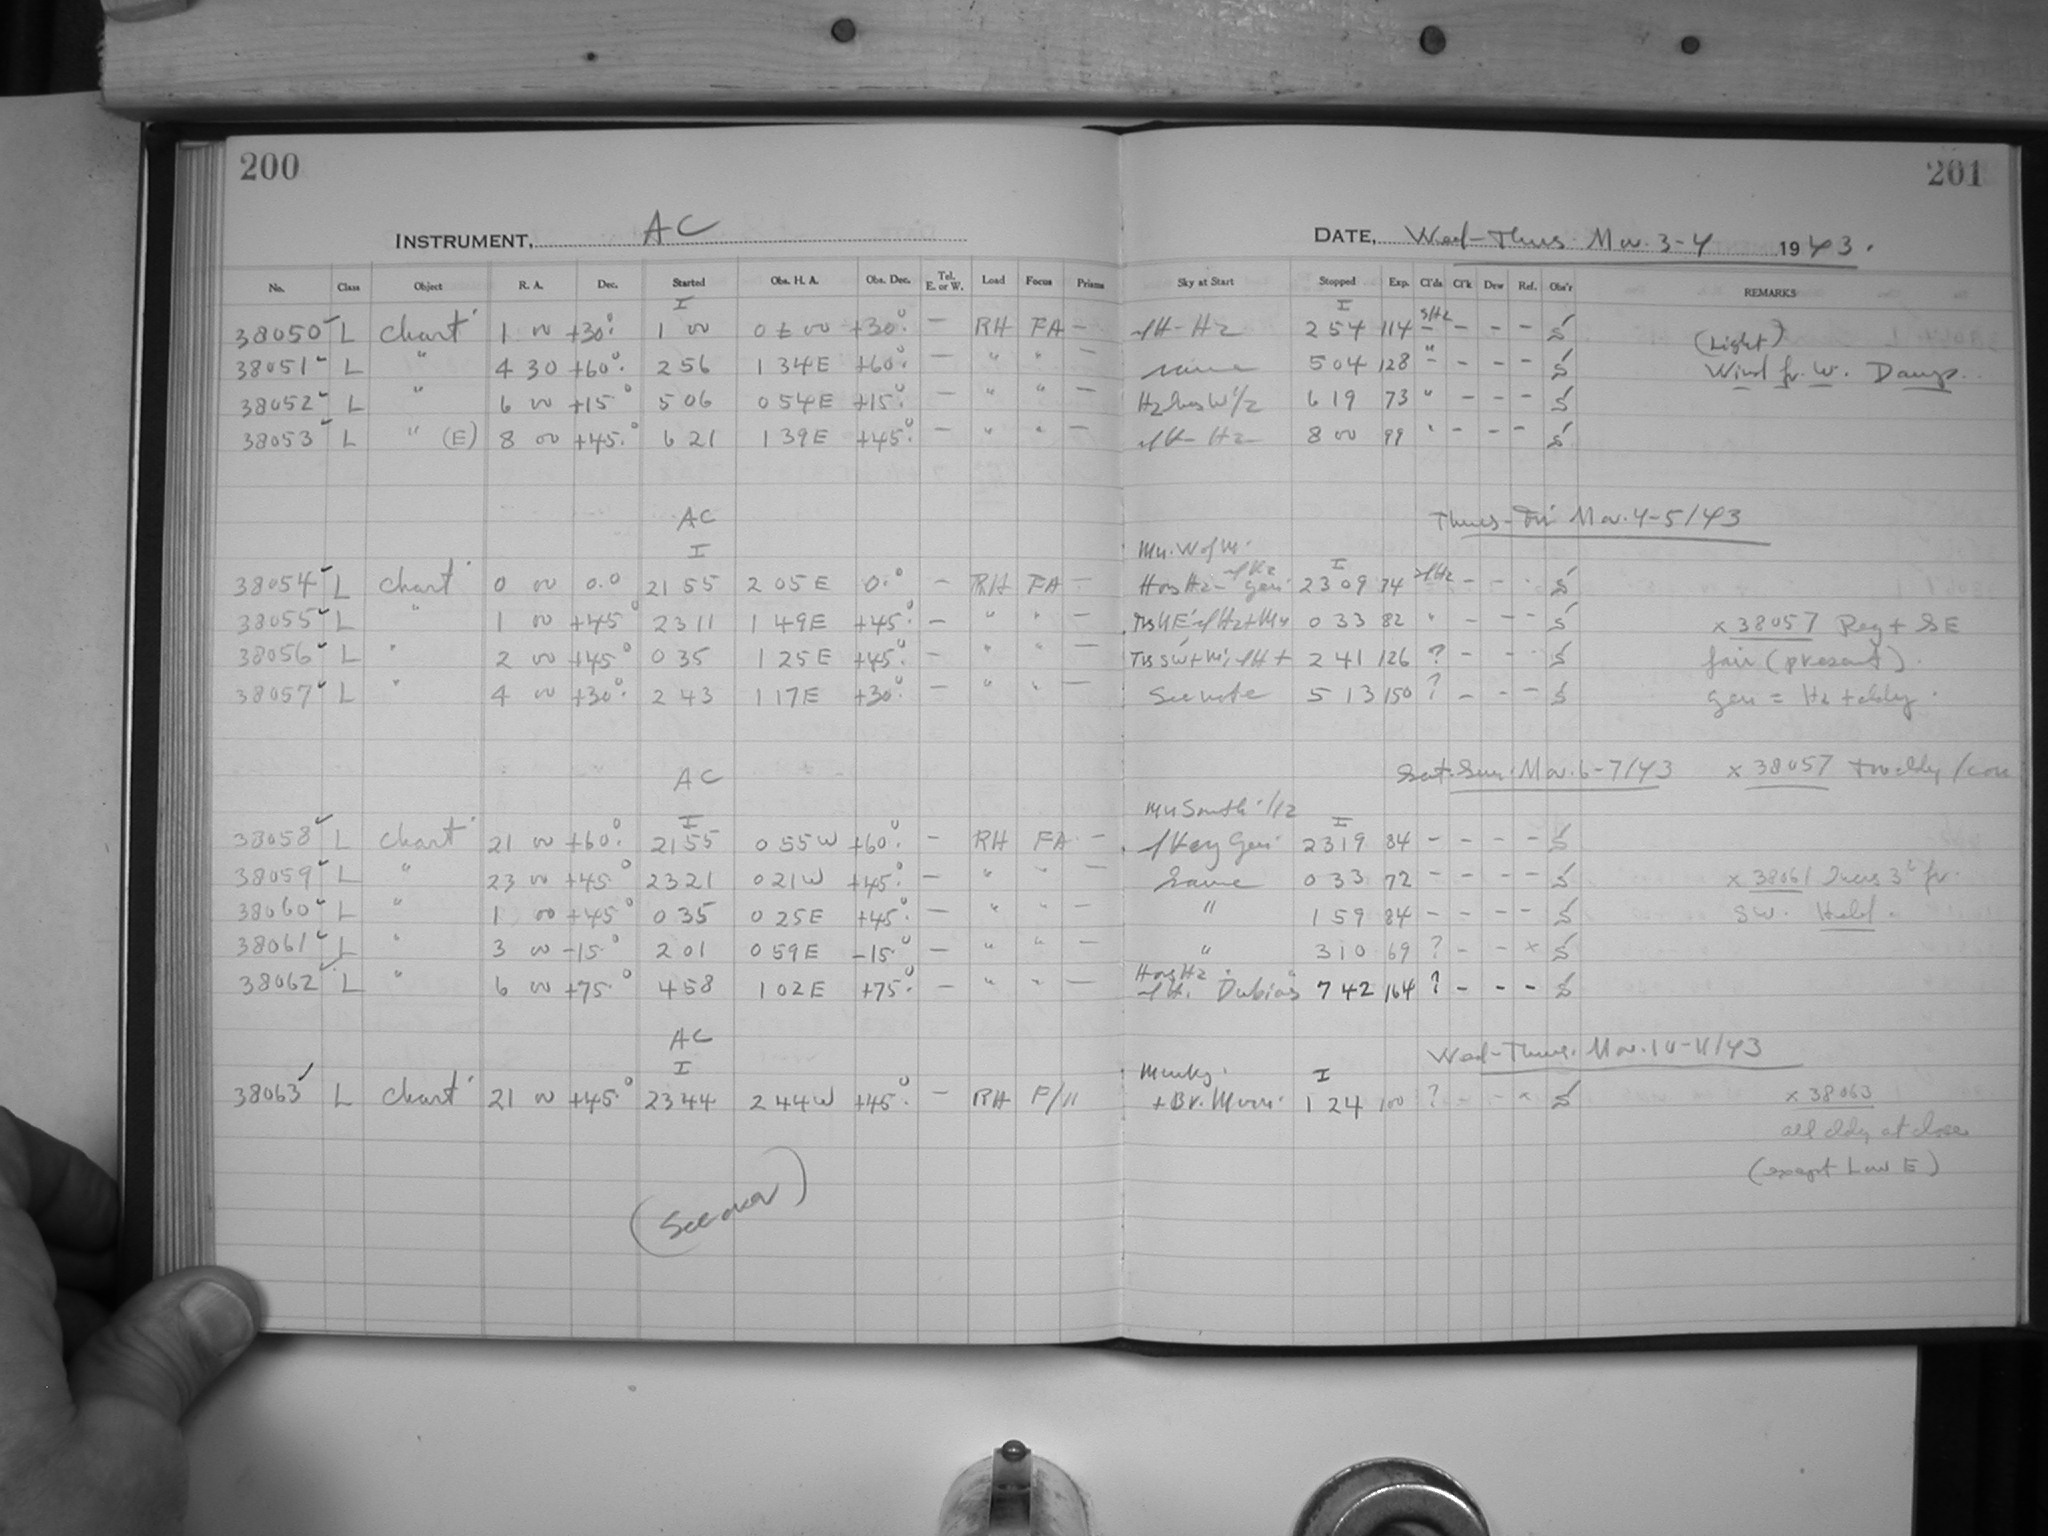 200 201
INSTRUMENT, AC DATE, Wed-Thurs. Mar. 3-4 1943.
No. Class Object R. A. Dec. Started Obs. H. A. Obs. Dec. Tel. E. or W. Load Focus Prisms Sky at Start Stopped Exp. Cl'ds Cl'k Dew Ref. Obs'r REMARKS
I I
38050 L Chart 1 00 +30° 1 00 0 ± 00 +30° - RH FA - 2 54 114 - - - - S (Light)
38051 L " 4 30 +60° 2 56 1 34E +60° - " " - same 5 04 128 " - - - S Wind fr. W. Damp.
38052 L " 6 00 +15° 5 06 0 54E +15° - " " - 6 19 73 " - - - S
38053 L " (E) 8 00 +45° 6 21 1 39E +45° - " " - 8 00 99 " - - - S
AC Thurs-Fri Mar. 4-5/43
I I
38054 L Chart 0 00 0.0 21 55 2 05E 0.° - RH FA - 23 09 74 - - - S
38055 L " 1 00 +45° 23 11 1 49E +45° - " " - 0 33 82 " - - - S x 38057 Reg + SE
38056 L " 2 00 +45° 0 35 1 25E +45° - " " - 2 41 126 ? - - - S fair (present).
38057 L " 4 00 +30° 2 43 1 17E +30° - " " - See note 5 13 150 ? - - - S gen = Hz + cldy.
AC Sat-Sun. Mar. 6-7/43 x 38057
I I
38058 L Chart 21 00 +60° 21 55 0 55W +60° - RH FA - 23 19 84 - - - - S
38059 L " 23 00 +45° 23 21 0 21W +45° - " " - Same 0 33 72 - - - - S x 38061 fr.
38060 L " 1 00 +45° 0 35 0 25E +45° - " " - " 1 59 84 - - - - S SW.
38061 L " 3 00 -15° 2 01 0 59E -15° - " " - " 3 10 69 ? - - x S
38062 L " 6 00 +75° 4 58 1 02E +75° - " " - Dubious 7 42 164 ? - - - S
AC Wed-Thurs. Mar. 10-11/43
I Murky. I
38063 L Chart 21 00 +45° 23 44 2 44W +45° - RH F/11 + Br. Moon. 1 24 100 ? - - x S x 38063
all cldy at close
(except Low E)
(See over)